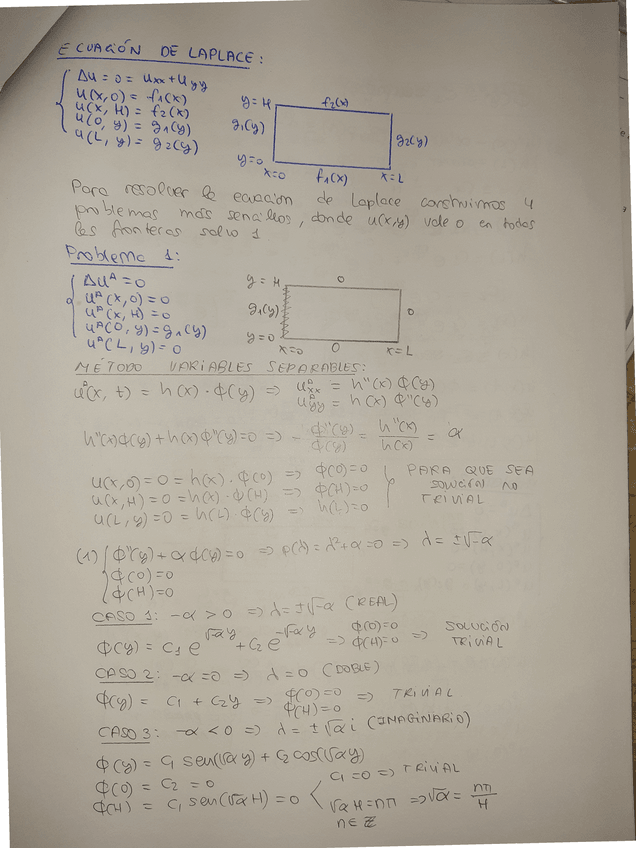 ECUACIÓN DE LAPLACE:
Δu = 0 = uxx + uyy
u(x,0) = f1(x)
u(x, H) = f2(x)
u(0, y) = g1(y)
u(L, y) = g2(y)
y = H f2(x)
g1(y) g2(y)
y=0
x=0 f1(x) x=L
Para resolver la ecuación de Laplace construimos 4
problemas más sencillos, donde u(x,y) vale 0 en todas
las fronteras salvo 1
Problema 1:
Δu^A = 0
u^A(x,0) = 0
u^A(x, H) = 0
u^A(0, y) = g1(y)
u^A(L, y) = 0
y = H 0
g1(y) 0
y=0
x=0 0 x=L
MÉTODO VARIABLES SEPARABLES:
u^A(x, t) = h(x) · ϕ(y) => u^A xx = h''(x) ϕ(y)
u^A yy = h(x) ϕ''(y)
h''(x)ϕ(y) + h(x)ϕ''(y) = 0 => - ϕ''(y)/ϕ(y) = h''(x)/h(x) = α
u(x,0) = 0 = h(x) · ϕ(0) => ϕ(0)=0
u(x,H) = 0 = h(x) · ϕ(H) => ϕ(H)=0
u(L, y) = 0 = h(L) · ϕ(y) => h(L)=0
PARA QUE SEA
SOLUCIÓN NO
TRIVIAL
(1) ϕ''(y) + α ϕ(y) = 0 => p(λ) = λ² + α = 0 => λ = ±√-α
ϕ(0)=0
ϕ(H)=0
CASO 1: -α > 0 => λ = ±√-α (REAL)
ϕ(y) = C1 e^√-α y + C2 e^-√-α y => ϕ(0)=0 ϕ(H)=0 => SOLUCIÓN TRIVIAL
CASO 2: -α = 0 => λ = 0 (DOBLE)
ϕ(y) = C1 + C2 y => ϕ(0)=0 ϕ(H)=0 => TRIVIAL
CASO 3: -α < 0 => λ = ± √α i (IMAGINARIO)
ϕ(y) = C1 sen(√α y) + C2 cos(√α y)
ϕ(0) = C2 = 0
ϕ(H) = C1 sen(√α H) = 0
C1 = 0 => TRIVIAL
√α H = nπ => √α = nπ/H
n ∈ Z